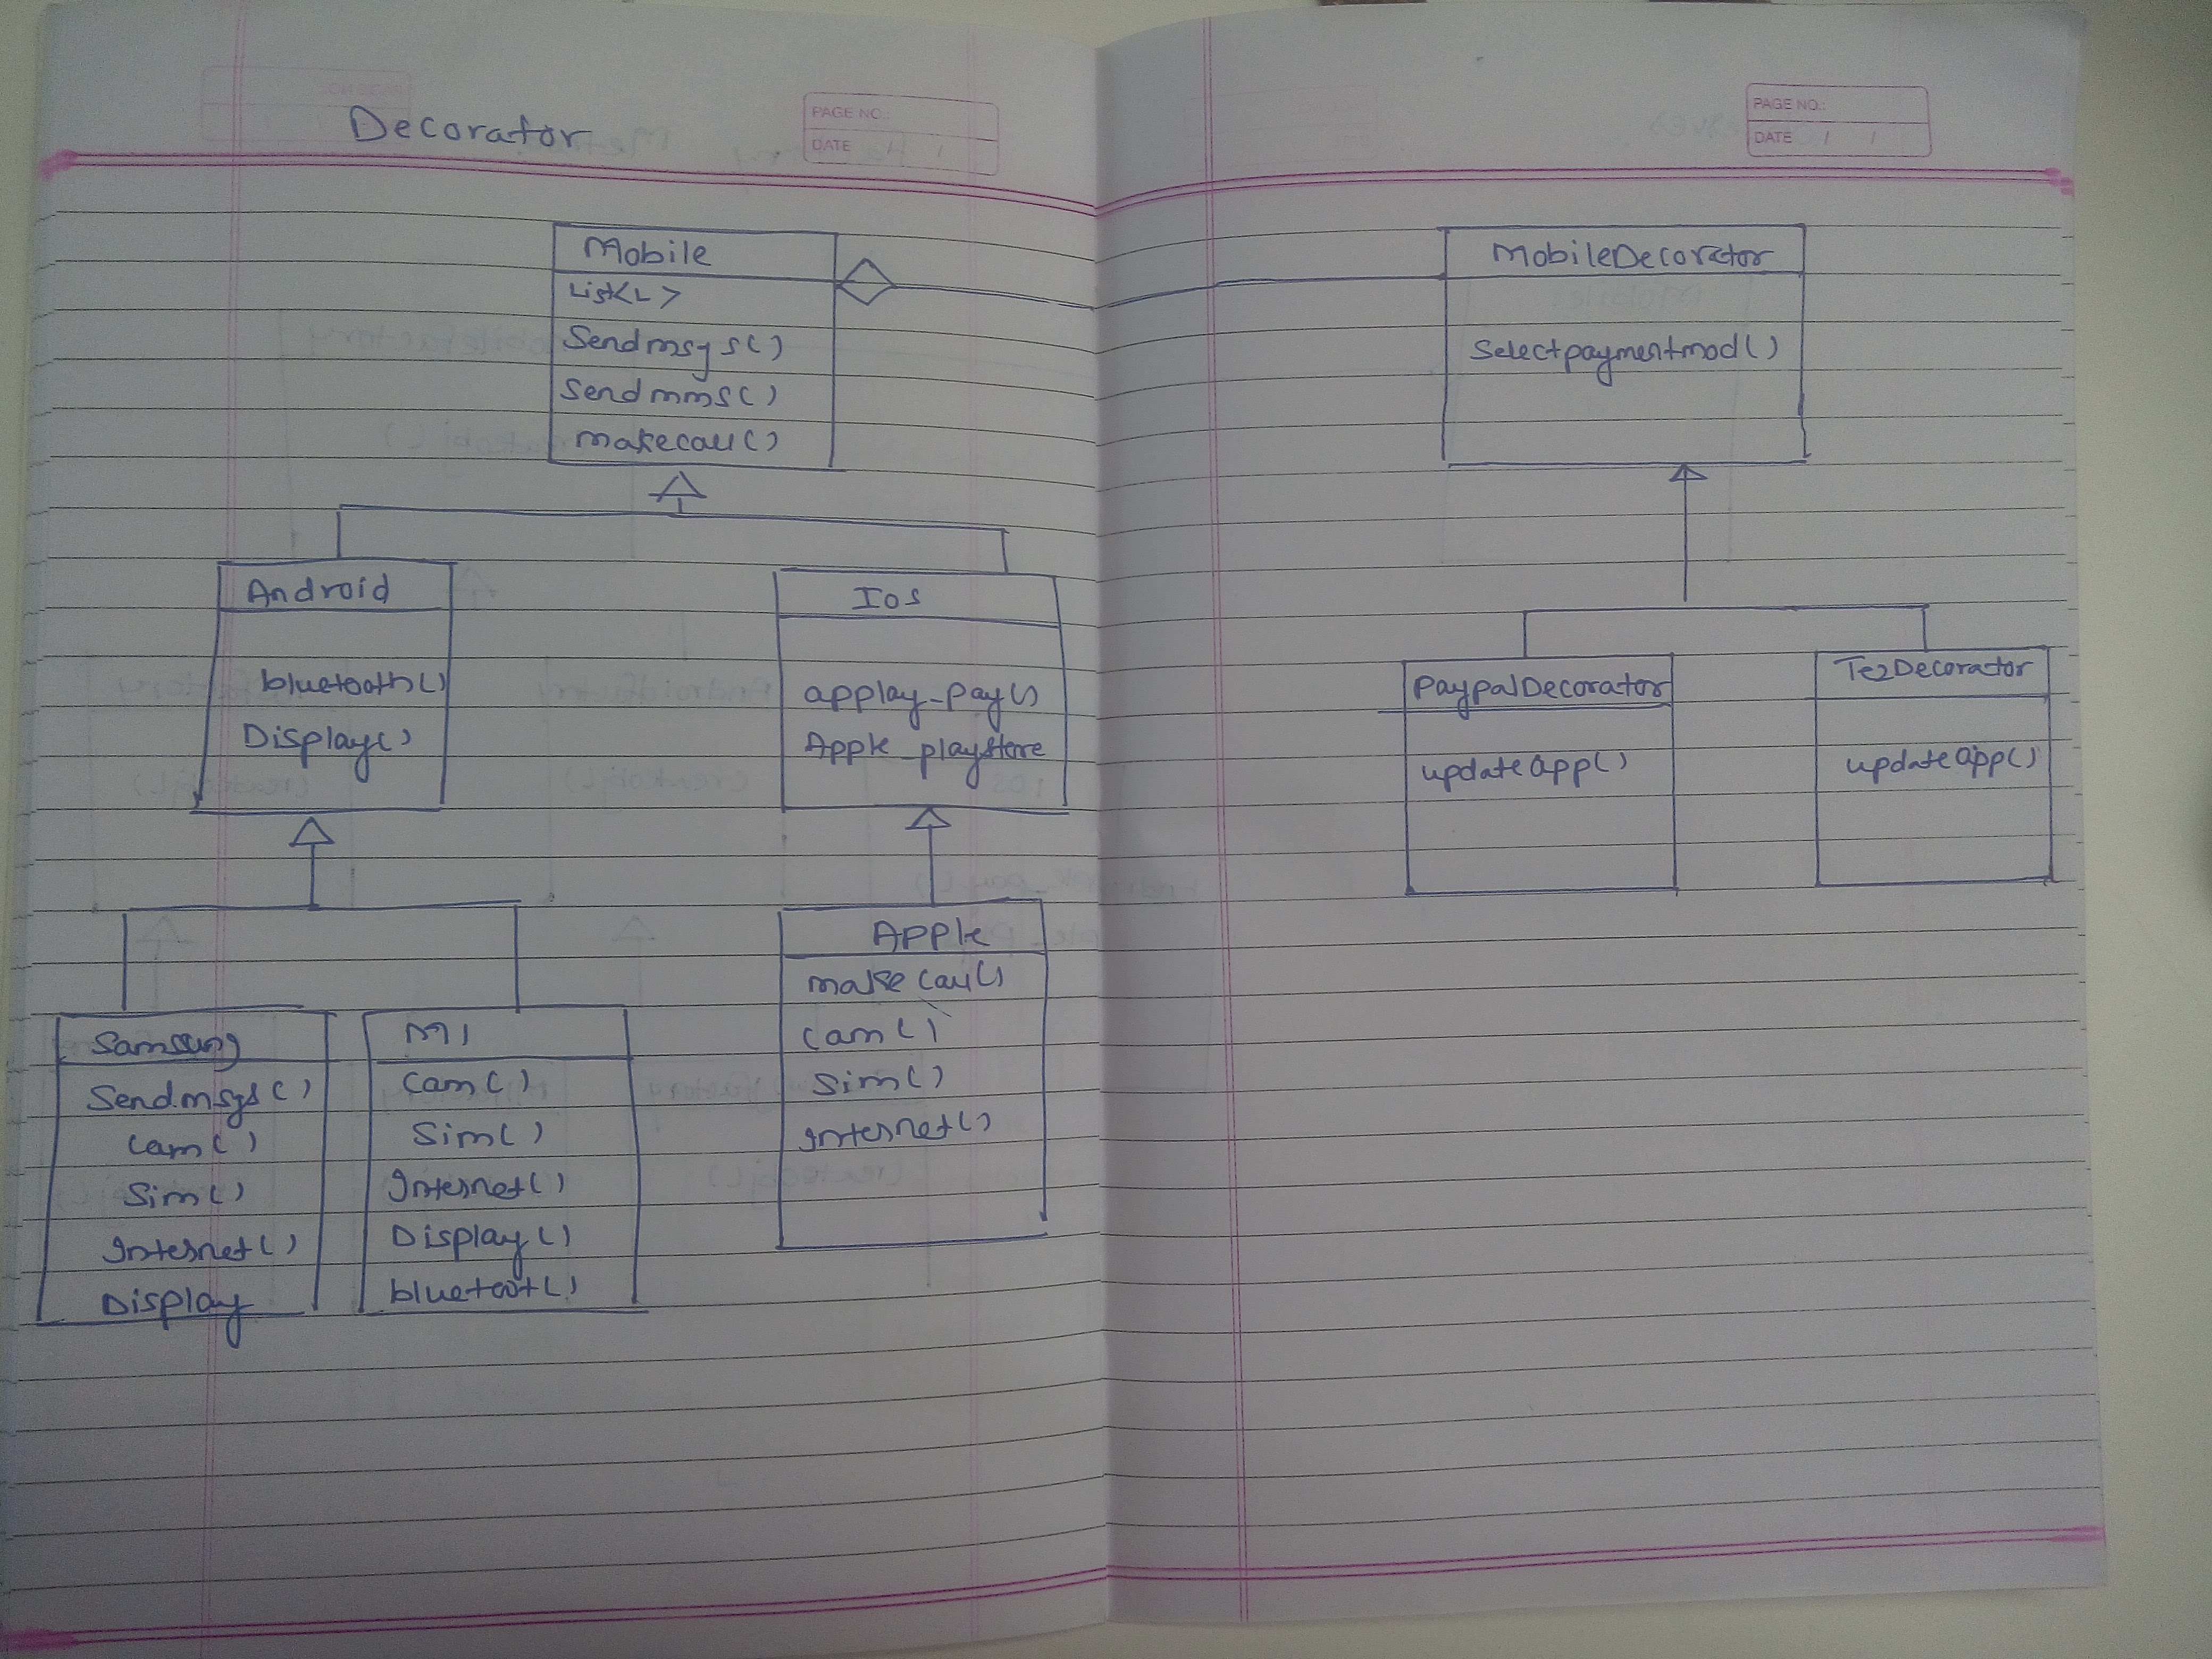 Decorator
PAGE NO.:
DATE / /
PAGE NO.:
DATE / /
Mobile
List<L>
Sendmsgs()
Sendmms()
makecall()
Android
bluetooth()
Display()
Ios
applay_pay()
Apple_playstore
Samsung
Sendmsgs()
cam()
Sim()
Internet()
Display
MI
cam()
Sim()
Internet()
Display()
bluetoot()
Apple
make call()
cam()
Sim()
Internet()
MobileDecorator
Selectpaymentmod()
PaypalDecorator
updateapp()
TezDecorator
updateapp()